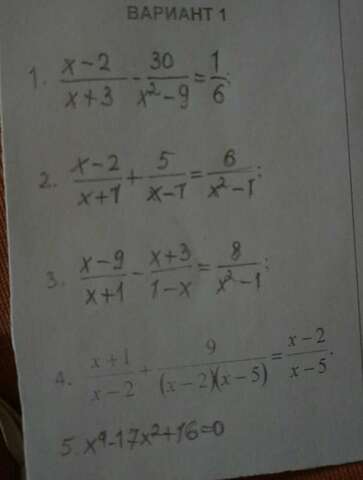 ВАРИАНТ 1
1. (x-2)/(x+3) - 30/(x²-9) = 1/6;
2. (x-2)/(x+1) + 5/(x-1) = 6/(x²-1);
3. (x-9)/(x+1) - (x+3)/(1-x) = 8/(x²-1);
4. (x+1)/(x-2) + 9/((x-2)(x-5)) = (x-2)/(x-5).
5. x⁴-17x²+16=0